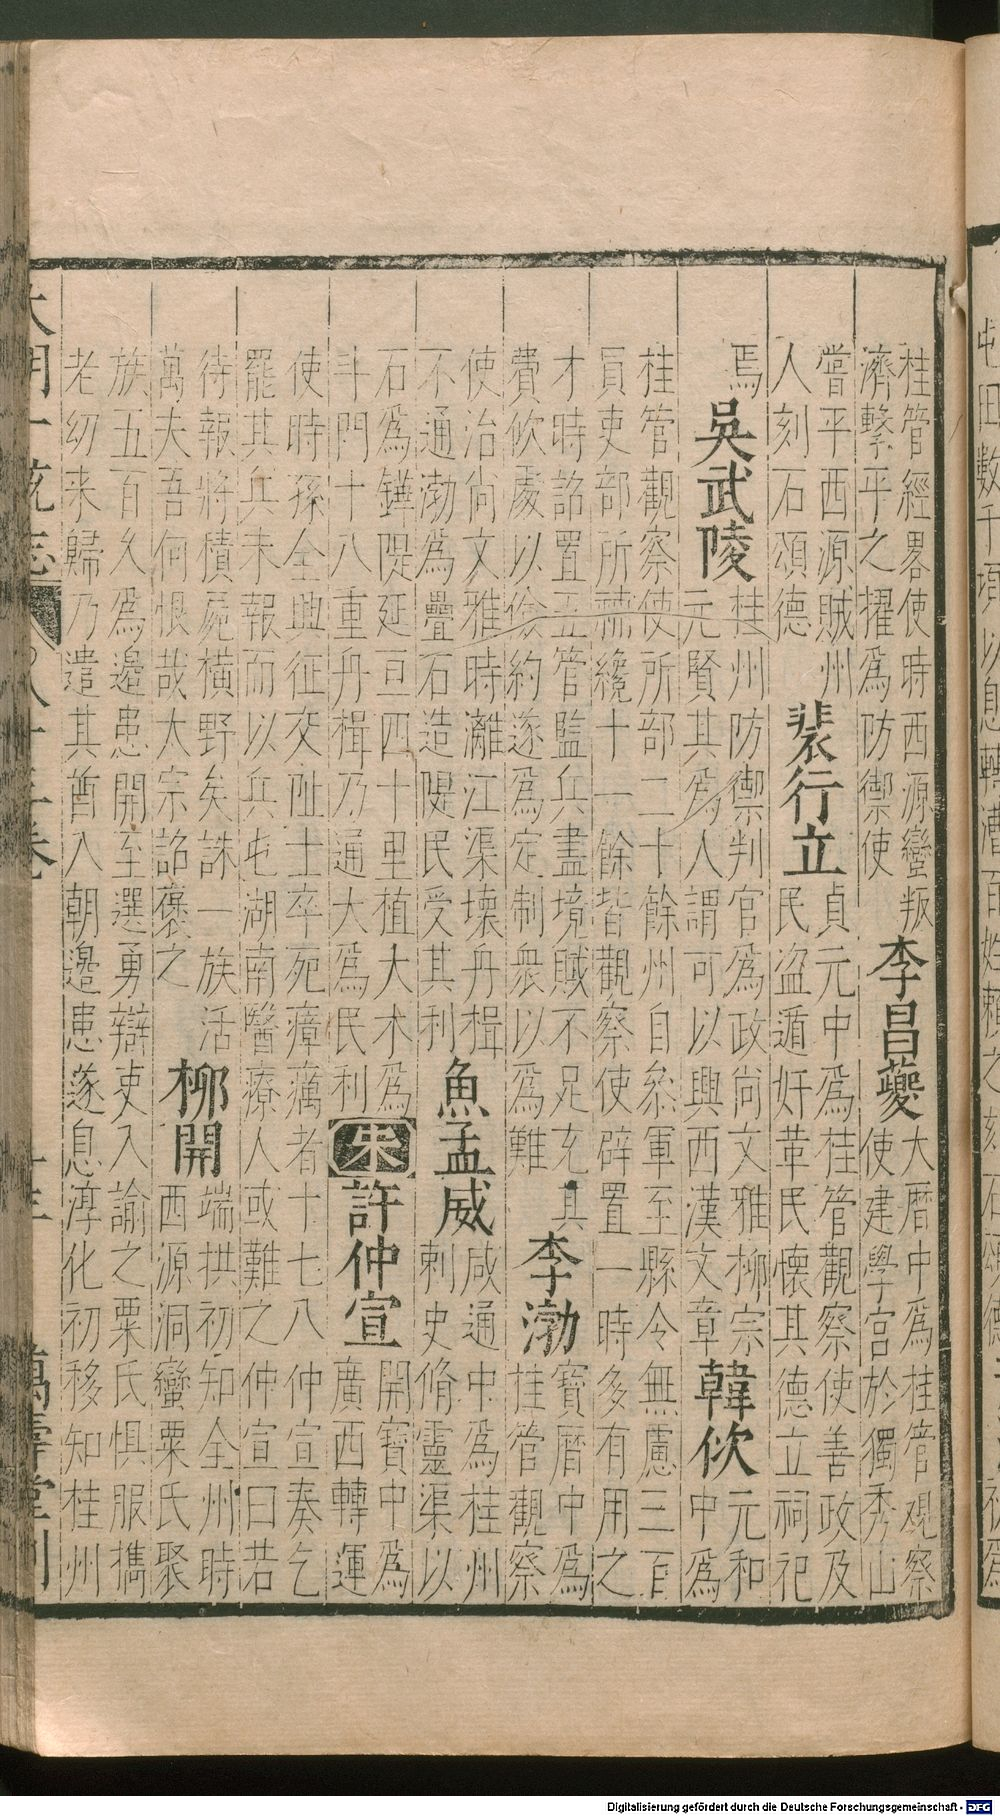 屯田数千頃以息轉漕百姓賴之刻石頌德
桂管經畧使時西源蠻叛
濟繫平之擢爲防禦使
李昌夔
大曆中爲桂管观察
使建學宮於獨秀山
嘗平西源賊州
人刻石頌德
裴行立
貞元中爲桂管觀察使善政及
民盜遁奸革民懷其德立祠祀
焉
吳武陵
桂州防禦判官爲政尚文雅柳宗
元賢其爲人謂可以興西漢文章
韓佽
元和
中爲
桂管觀察使所部二十餘州自叅軍至縣令無慮三百
員吏部所補纔十一餘皆觀察使辟置一時多有用之
才時詔置五管監兵盡境賦不足充其
費佽處以儉約遂爲定制衆以爲難
李渤
寶曆中爲
桂管觀察
使治尚文雅時灕江渠壞舟楫
不通渤爲疊石造隄民受其利
魚孟威
咸通中爲桂州
刺史脩靈渠以
石爲鏵隄延亘四十里植大木爲
斗門十八重舟楫乃通大爲民利
宋
許仲宣
開寶中爲
廣西轉運
使時孫全興征交阯士卒死瘴癘者十七八仲宣奏乞
罷其兵未報而以兵屯湖南醫療人或難之仲宣曰若
待報將積屍橫野矣誅一族活
萬夫吾何恨哉太宗詔褒之
柳開
端拱初知全州時
西源洞蠻粟氏聚
族五百人爲邊患開至選勇辯吏入諭之粟氏懼服攜
老幼来歸乃遣其酋入朝邊患遂息淳化初移知桂州
大明一統志
八十三卷
萬壽堂刊
Digitalisierung gefördert durch die Deutsche Forschungsgemeinschaft - DFG